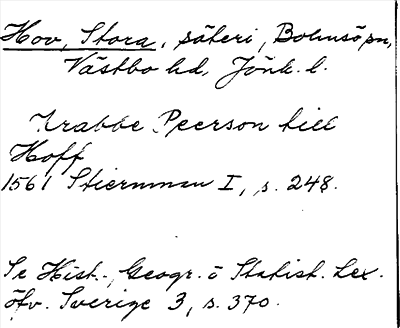 Hov, Stora, säteri, Bolmsö sn,
Västbo hd, Jönk. l.
Krabbe Peerson till
Hoff
1561 Stiernman I, s. 248.
Se Hist.-Geogr. o Statist. Lex.
öfv. Sverige 3, s. 370.